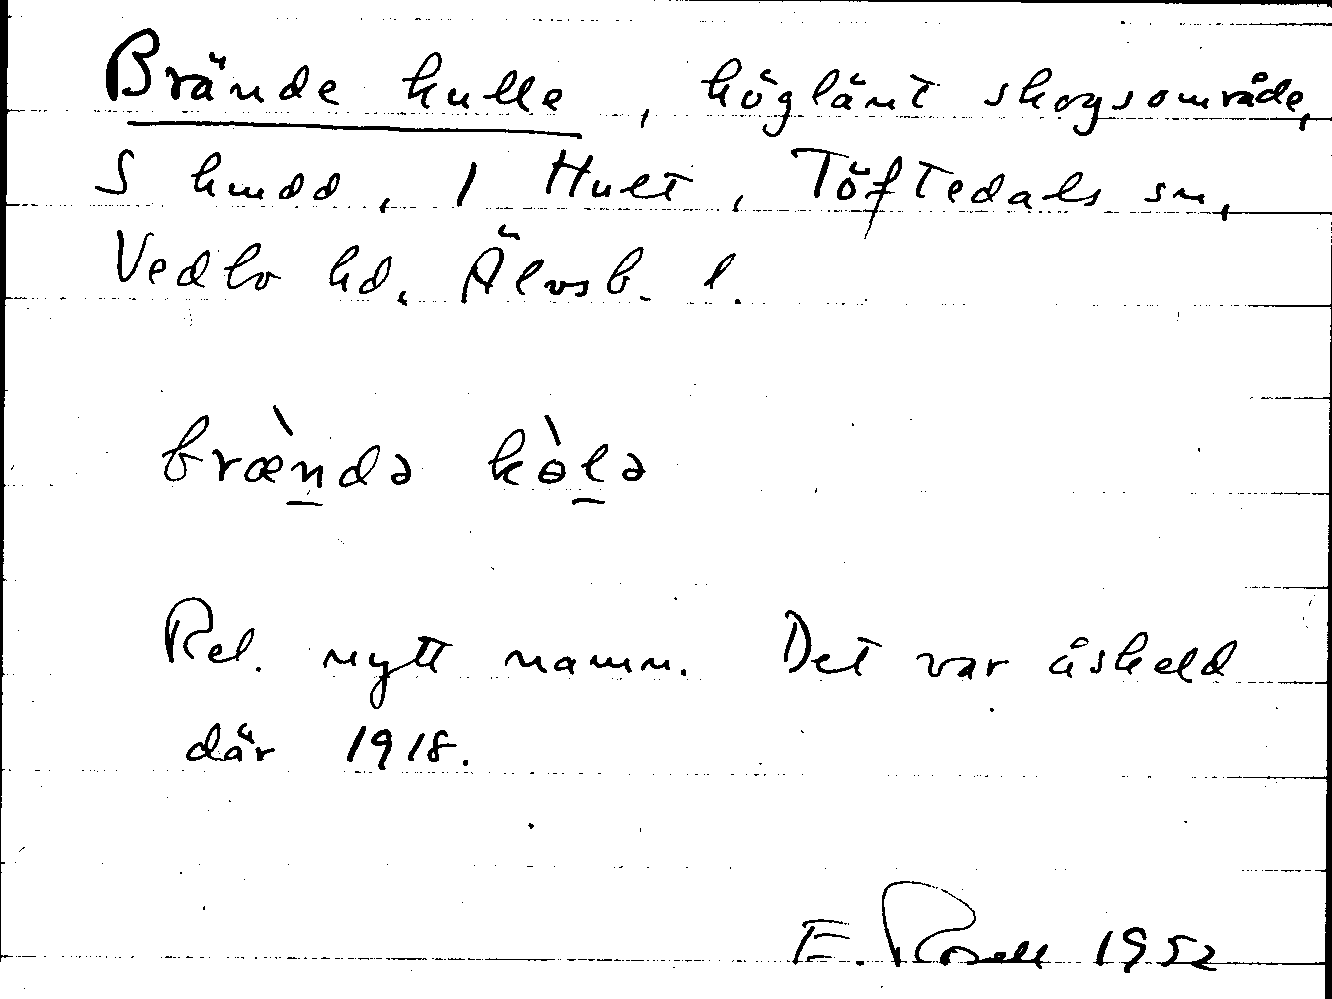 Brände kulle, höglänt skogsområde,
S hmdd, 1 Hult, Töftedals sn,
Vedbo hd. Älvsb. l.
bræ̀ndə kɵ̀lə
Rel. nytt namn. Det var åskeld
där 1918.
E. Rosell 1952